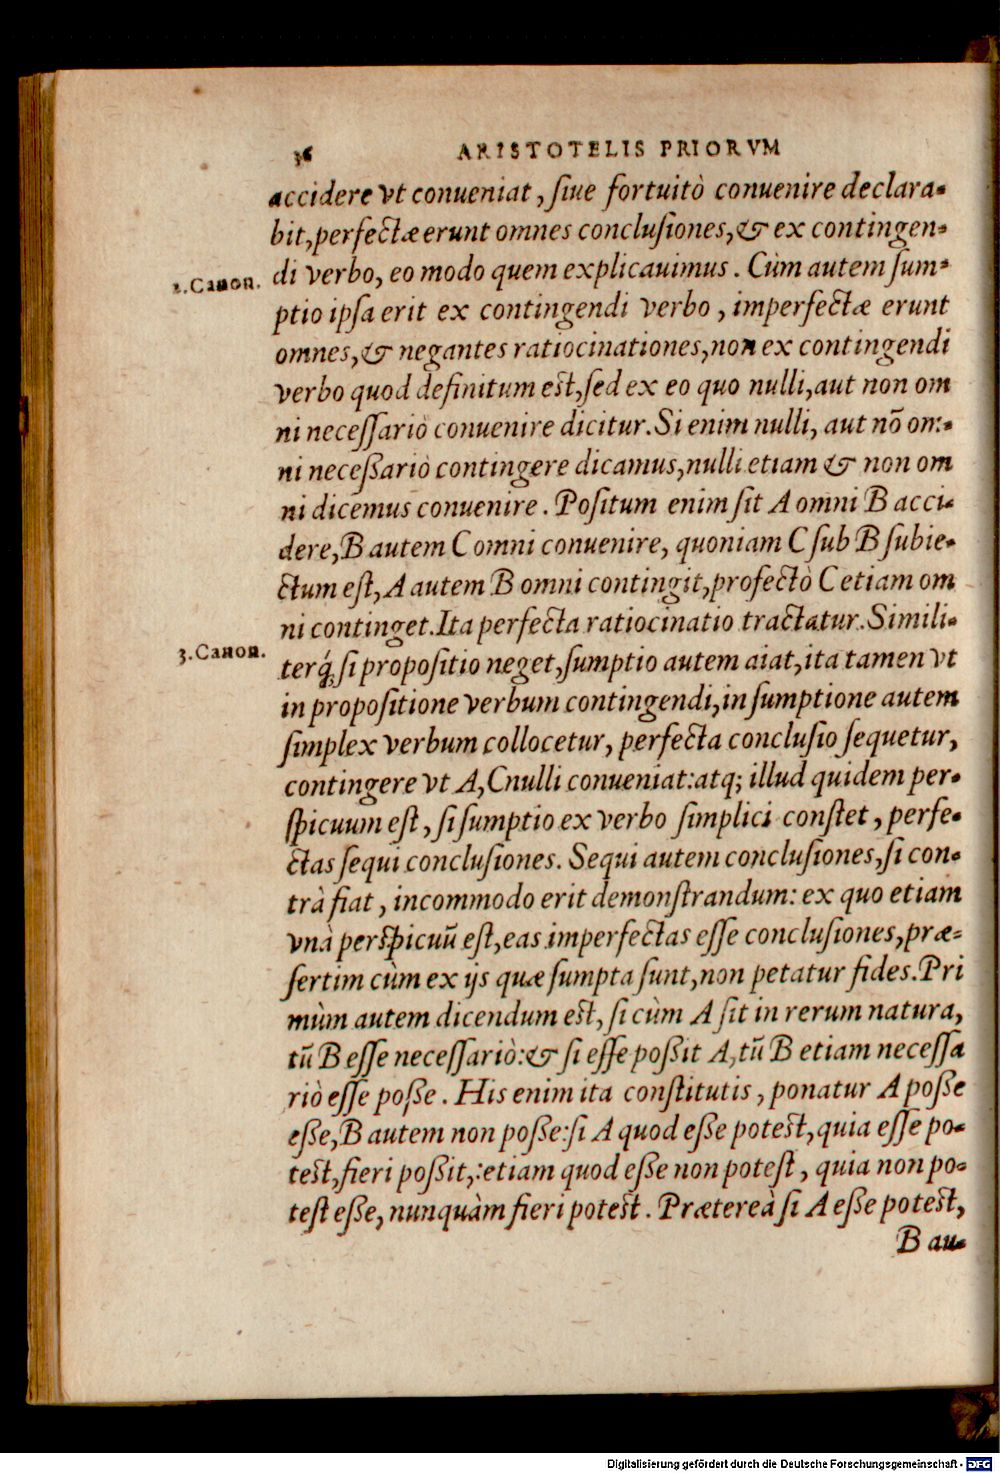 36 ARISTOTELIS PRIORVM
accidere vt conueniat, siue fortuitò conuenire declara-
bit, perfectæ erunt omnes conclusiones, & ex contingen-
2. Canon. di verbo, eo modo quem explicauimus. Cùm autem sum-
ptio ipsa erit ex contingendi verbo, imperfectæ erunt
omnes, & negantes ratiocinationes, non ex contingendi
verbo quod definitum est, sed ex eo quo nulli, aut non om
ni necessariò conuenire dicitur. Si enim nulli, aut nō om-
ni necessariò contingere dicamus, nulli etiam & non om
ni dicemus conuenire. Positum enim sit A omni B acci-
dere, B autem C omni conuenire, quoniam C sub B subie-
ctum est, A autem B omni contingit, profectò C etiam om
ni continget. Ita perfecta ratiocinatio tractatur. Simili-
3. Canon. terq́; si propositio neget, sumptio autem aiat, ita tamen vt
in propositione verbum contingendi, in sumptione autem
simplex verbum collocetur, perfecta conclusio sequetur,
contingere vt A, C nulli conueniat: atq; illud quidem per-
spicuum est, si sumptio ex verbo simplici constet, perfe-
ctas sequi conclusiones. Sequi autem conclusiones, si con-
trà fiat, incommodo erit demonstrandum: ex quo etiam
vnà perspicuū est, eas imperfectas esse conclusiones, præ-
sertim cùm ex ijs quæ sumpta sunt, non petatur fides. Pri
mùm autem dicendum est, si cùm A sit in rerum natura,
tū B esse necessariò: & si esse possit A, tū B etiam necessa
riò esse posse. His enim ita constitutis, ponatur A posse
esse, B autem non posse: si A quod esse potest, quia esse po-
test, fieri possit,: etiam quod esse non potest, quia non po-
test esse, nunquàm fieri potest. Prætereà si A esse potest,
B au-
Digitalisierung gefördert durch die Deutsche Forschungsgemeinschaft - DFG